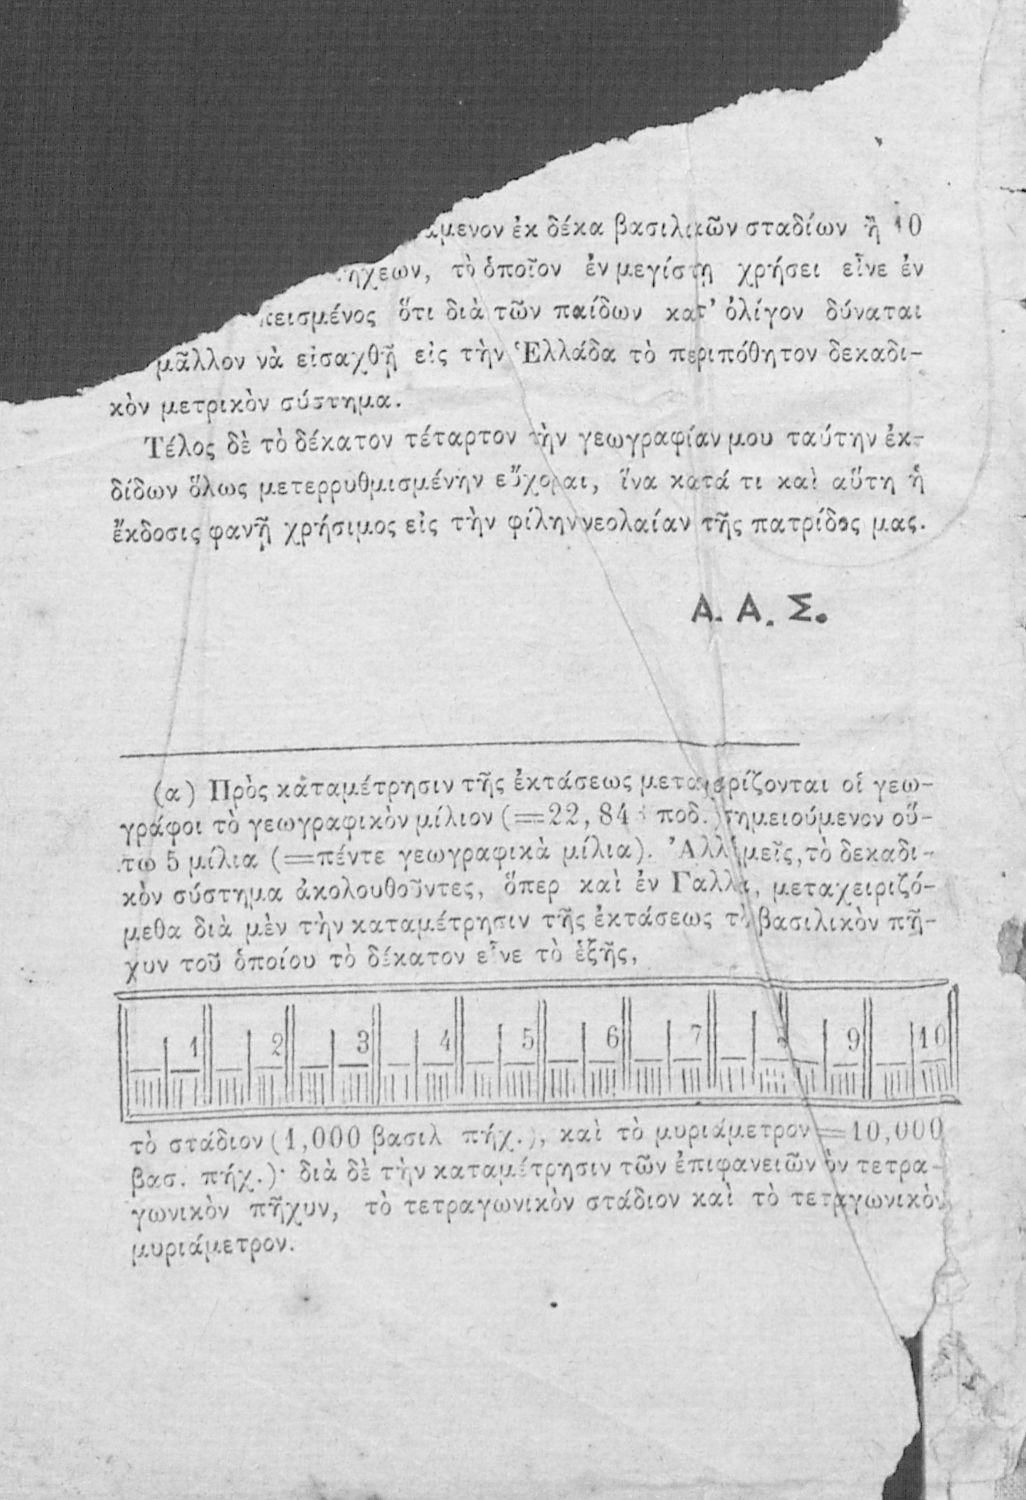 ἐκ δέκα βασιλικῶν σταδίων ἢ 10
τὸ ὁποῖον ἐν μεγίστῃ χρήσει εἶνε ἐν
ὅτι διὰ τῶν παίδων κατ' ὀλίγον δύναται
μᾶλλον νὰ εἰσαχθῇ εἰς τὴν Ἑλλάδα τὸ περιπόθητον δεκαδι-
κὸν μετρικὸν σύστημα.
Τέλος δὲ τὸ δέκατον τέταρτον τὴν γεωγραφίαν μου ταύτην ἐκ-
δίδων ὅλως μετερρυθμισμένην εὔχομαι, ἵνα κατά τι καὶ αὕτη ἡ
ἔκδοσις φανῇ χρήσιμος εἰς τὴν φίλην νεολαίαν τῆς πατρίδος μας.
Α. Α. Σ.
(α) Πρὸς κἀταμέτρησιν τῆς ἐκτάσεως μεταχειρίζονται οἱ γεω-
γράφοι τὸ γεωγραφικὸν μίλιον (=22, 84 ποδ.) σημειούμενον οὕ-
τω 5 μίλια (=πέντε γεωγραφικὰ μίλια). τὸ δεκαδι-
κὸν σύστημα ἀκολουθοῦντες, ὅπερ καὶ ἐν μεταχειριζό-
μεθα διὰ μὲν τὴν καταμέτρησιν τῆς ἐκτάσεως τὸ βασιλικὸν πῆ-
χυν τοῦ ὁποίου τὸ δέκατον εἶνε τὸ ἑξῆς,
1 2 3 4 5 6 7 8 9 10
τὸ στάδιον (1,000 βασιλ πήχ.), καὶ τὸ μυριάμετρον=10,000
βασ. πήχ.)· διὰ δὲ τὴν καταμέτρησιν τῶν ἐπιφανειῶν τετρα-
γωνικὸν πῆχυν, τὸ τετραγωνικὸν στάδιον καὶ τὸ τετραγωνικὸν
μυριάμετρον.